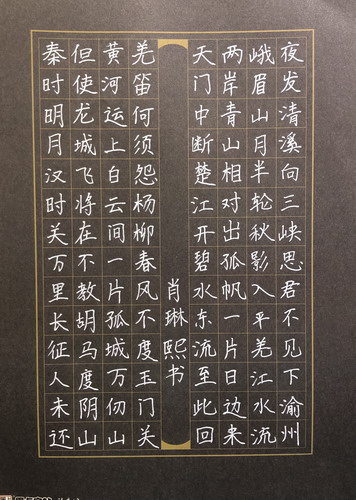 秦时明月汉时关万里长征人未还
但使龙城飞将在不教胡马度阴山
黄河远上白云间一片孤城万仞山
羌笛何须怨杨柳春风不度玉门关
肖琳熙书
天门中断楚江开碧水东流至此回
两岸青山相对出孤帆一片日边来
峨眉山月半轮秋影入平羌江水流
夜发清溪向三峡思君不见下渝州